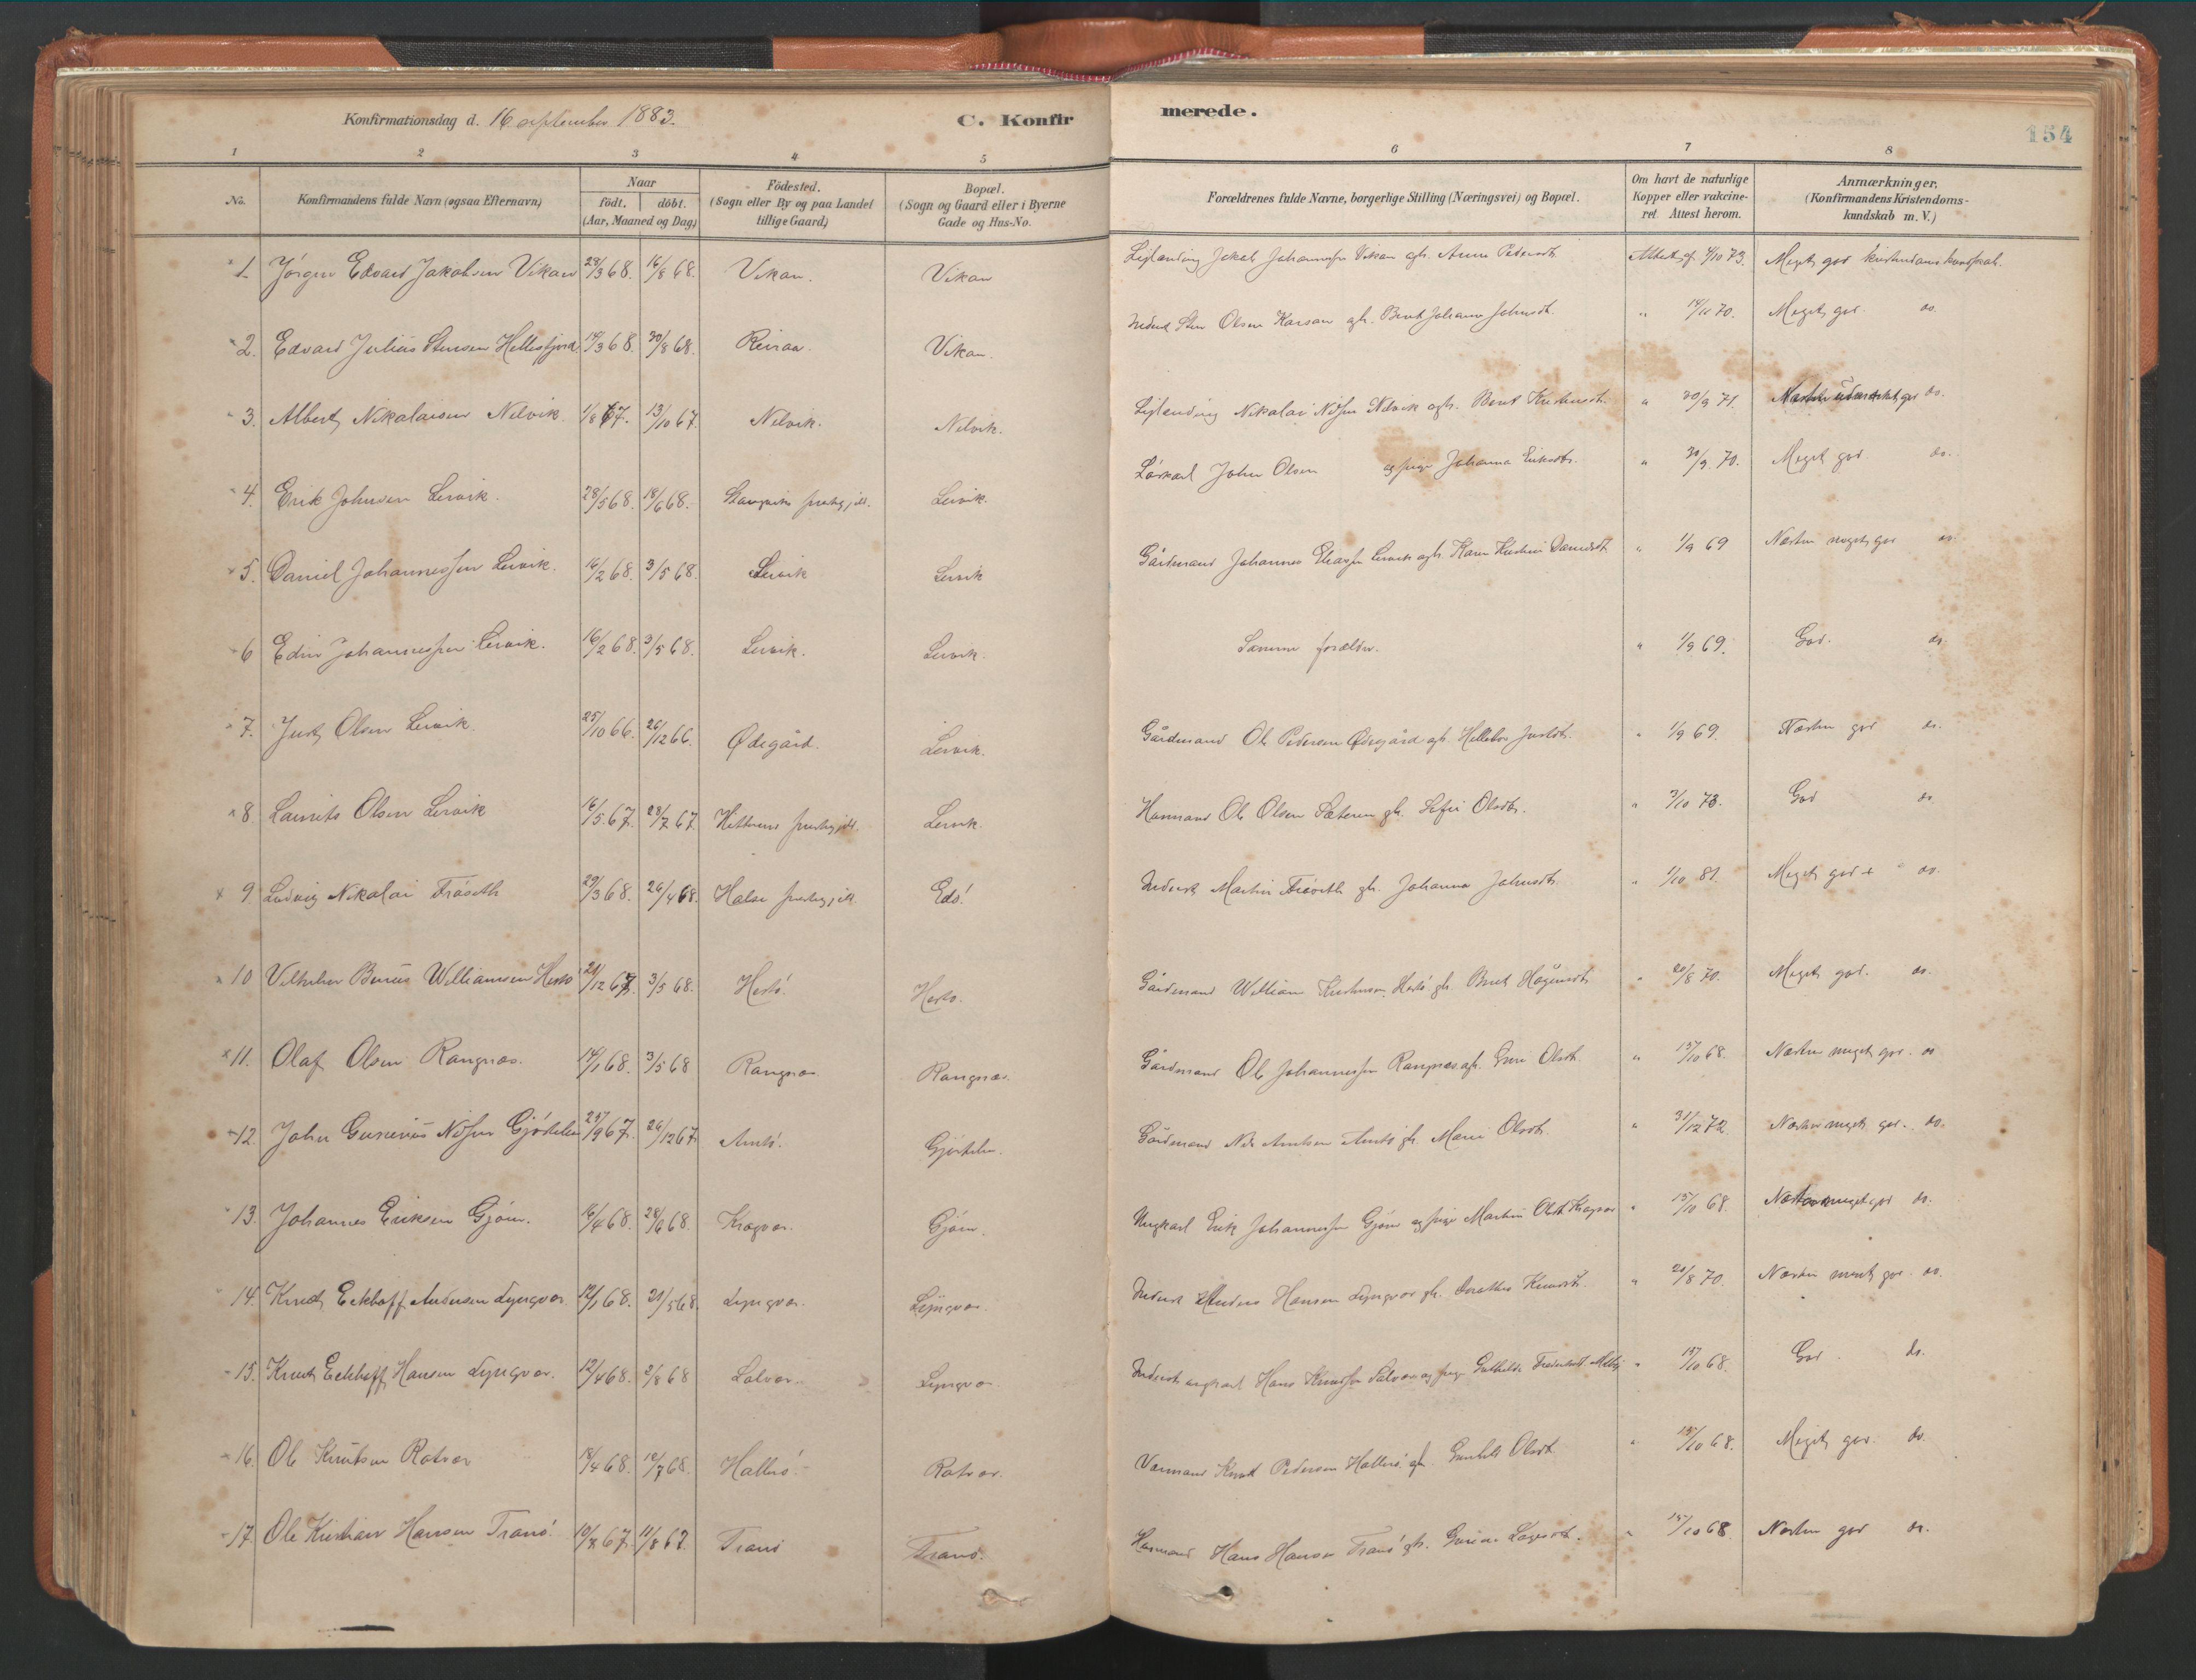 Konfirmationsdag d. 16 september 1883.
C. Konfirmerede.
154
1 2 3 4 5 6 7 8
No.
Konfirmandens fulde Navn (ogsaa Efternavn)
Naar
födt. döbt.
(Aar, Maaned og Dag)
Födested.
(Sogn eller By og paa Landet
tillige Gaard)
Bopæl.
(Sogn og Gaard eller i Byerne
Gade og Hus-No.
Forældrenes fulde Navne, borgerlige Stilling (Næringsvei) og Bopæl.
Om havt de naturlige
Kopper eller vakcine-
ret Attest herom.
Anmærkninger.
(Konfirmandens Kristendoms-
kundskab m. V.)
1. Jörgen Edvard Jakobsen Vikan 23/3 68. 16/8 68. Vikan. Vikan Jakob Johannessen Vikan gh. Anne Pedersdt. Attest af 4/10 73. Meget god kristendomskundskab.
2. Edvard Julius Stensen Hellesfjord 14/3 68. 30/8 68. Reiraa Vikan. Inderst Sten Olsen gh. Berit Johanna Johnsdt. " 14/11 70. Meget god. do.
3. Albert Nikolaisen Nelvik 1/8 67. 13/10 67. Nelvik. Nelvik. Nikolai Nilsen Nelvik gh. Berit Kristensdt. " 20/9 71. do.
4. Erik Johnsen Lervik. 28/5 68. 18/6 68. Stangviks prestegjeld. Lervik. Löskarl John Olsen og pige Johanna Eriksdtr. " 30/9 70. Meget god do.
5. Daniel Johannessen Lervik. 16/2 68. 3/5 68. Lervik Lervik Gårdmand Johannes Lervik gh. Karen Kristine Danielsdt. " 1/9 69 Næsten meget god do.
6 Edin Johannessen Lervik. 16/2 68. 3/5 68. Lervik. Lervik. Samme forældre. " 1/9 69. God. do.
7. Just Olsen Lervik 25/10 66. 26/12 66. Ødegård. Lervik. Gårdmand Ole Pedersen Ødegård gh. Hellebor Justdt. " 1/9 69. Næsten god do.
8. Laurits Olsen Lervik 16/5 67. 28/7 67. Hitterens prestegjeld. Lervik. Husmand Ole Olsen Sæteren gh. Sofie Olsdtr. " 3/10 73. God do
9. Ludvig Nikolai Fröseth 29/3 68. 26/4 68. Halse prestegjeld. Edö. Inderst Martin Fröseth gh. Johanna Johnsdt. " 1/10 81. Meget god + do.
10 Vilhelm Berius Williamsen Hestö 21/12 67. 3/5 68. Hestö. Hestö. Gårdmand William Kristensen Hestö gh. Berit Hågensdt. " 20/8 70. Meget god. do.
11. Olaf Olsen Rangnæs. 14/1 68. 3/5 68 Rangnæs Rangnæs. Gårdmand Ole Johannessen Rangnæs gh. Guri Olsdt. " 15/10 68. Næsten meget god. do
12. John Gunerius Nilsen Gjöstelien 25/9 67. 26/12 67 Arntö. Gjöstelien. Gårdmand Nils Arntsen Arntö gh. Marie Olsdt. " 31/12 72. Næsten meget god. do.
13. Johannes Eriksen Gjöen. 16/4 68. 24/6 68. Kragvær. Gjöen. Ungkarl Erik Johannessen Gjöen og pige Martine Olsdt. Kragvær " 15/10 68. Næsten meget god do.
14. Knut Eckhoff Andersen Lyngvær. 12/1 68. 21/5 68. Lyngvær. Lyngvær. Inderst Anders Hansen Lyngvær gh. Dorothea Knutsdt. " 20/8 70. Næsten meget god. do.
15. Knut Eckhoff Hansen Lyngvær. 12/4 68. 2/8 68 Lalvær. Lyngvær Inderst ungkarl Hans Knutsen og pige " 15/10 68. God. do.
16. Ole Knutsen Rotvær 18/4 68. 12/7 68. Hallerö. Rotvær. Knut Pedersen Hallerö gh. Gunhild Olsdt. " 15/10 68. Meget god. do.
17. Ole Kristian Hansen Tranö. 10/7 67. 11/8 67. Tranö Tranö. Husmand Hans Hansen Tranö gh. " 15/10 68. Næsten god do.